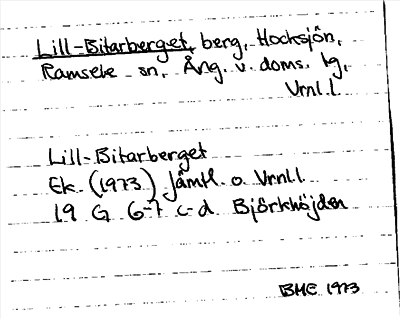 Lill-Bitarberget, berg, Hocksjön,
Ramsele sn, Ång. v. doms. lg,
Vrnl. l.
Lill-Bitarberget
Ek. (1973) Jämtl. o. Vrnl. l.
19 G 6-7 c-d Björkhöjden
BME 1973